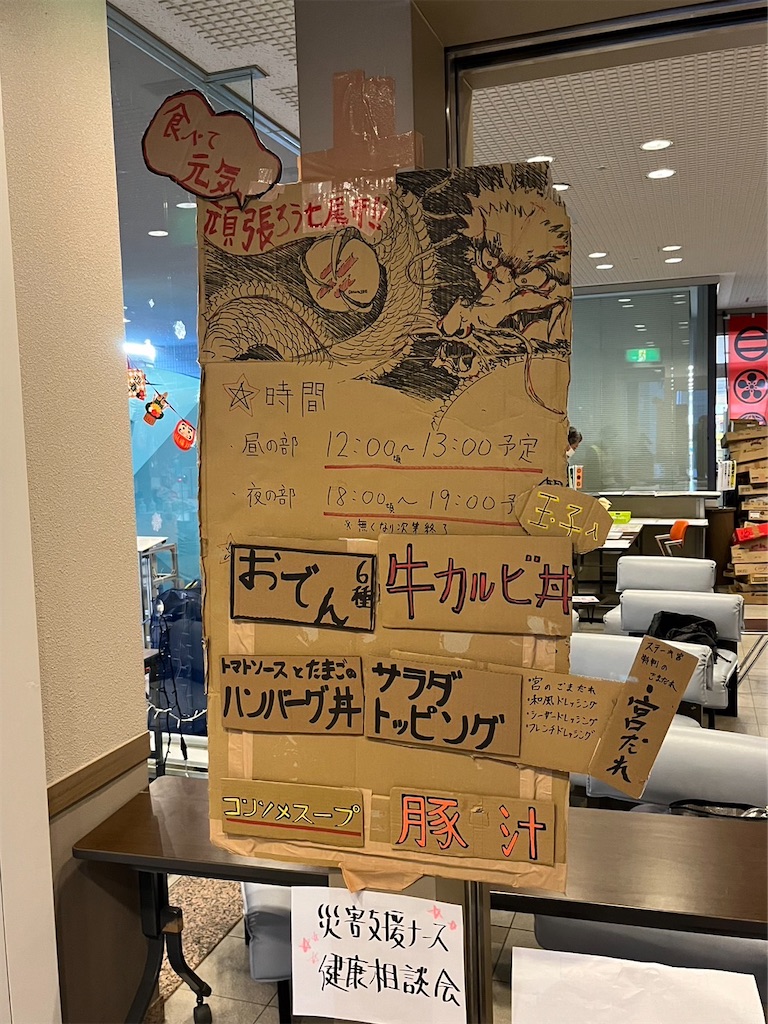 食べて
元気
頑張ろう七尾市!!
☆時間
・昼の部 12:00頃~13:00予定
・夜の部 18:00頃~19:00予
※無くなり次第終了
玉子入
おでん 6種
牛カルビ丼
トマトソースとたまごの
ハンバーグ丼
サラダ
トッピング
・宮のごまだれ
・和風ドレッシング
・シーザードレッシング
・フレンチドレッシング
ステーキ宮
特製の
ごまだれ
・宮だれ
コンソメスープ
豚汁
災害支援ナース
健康相談会